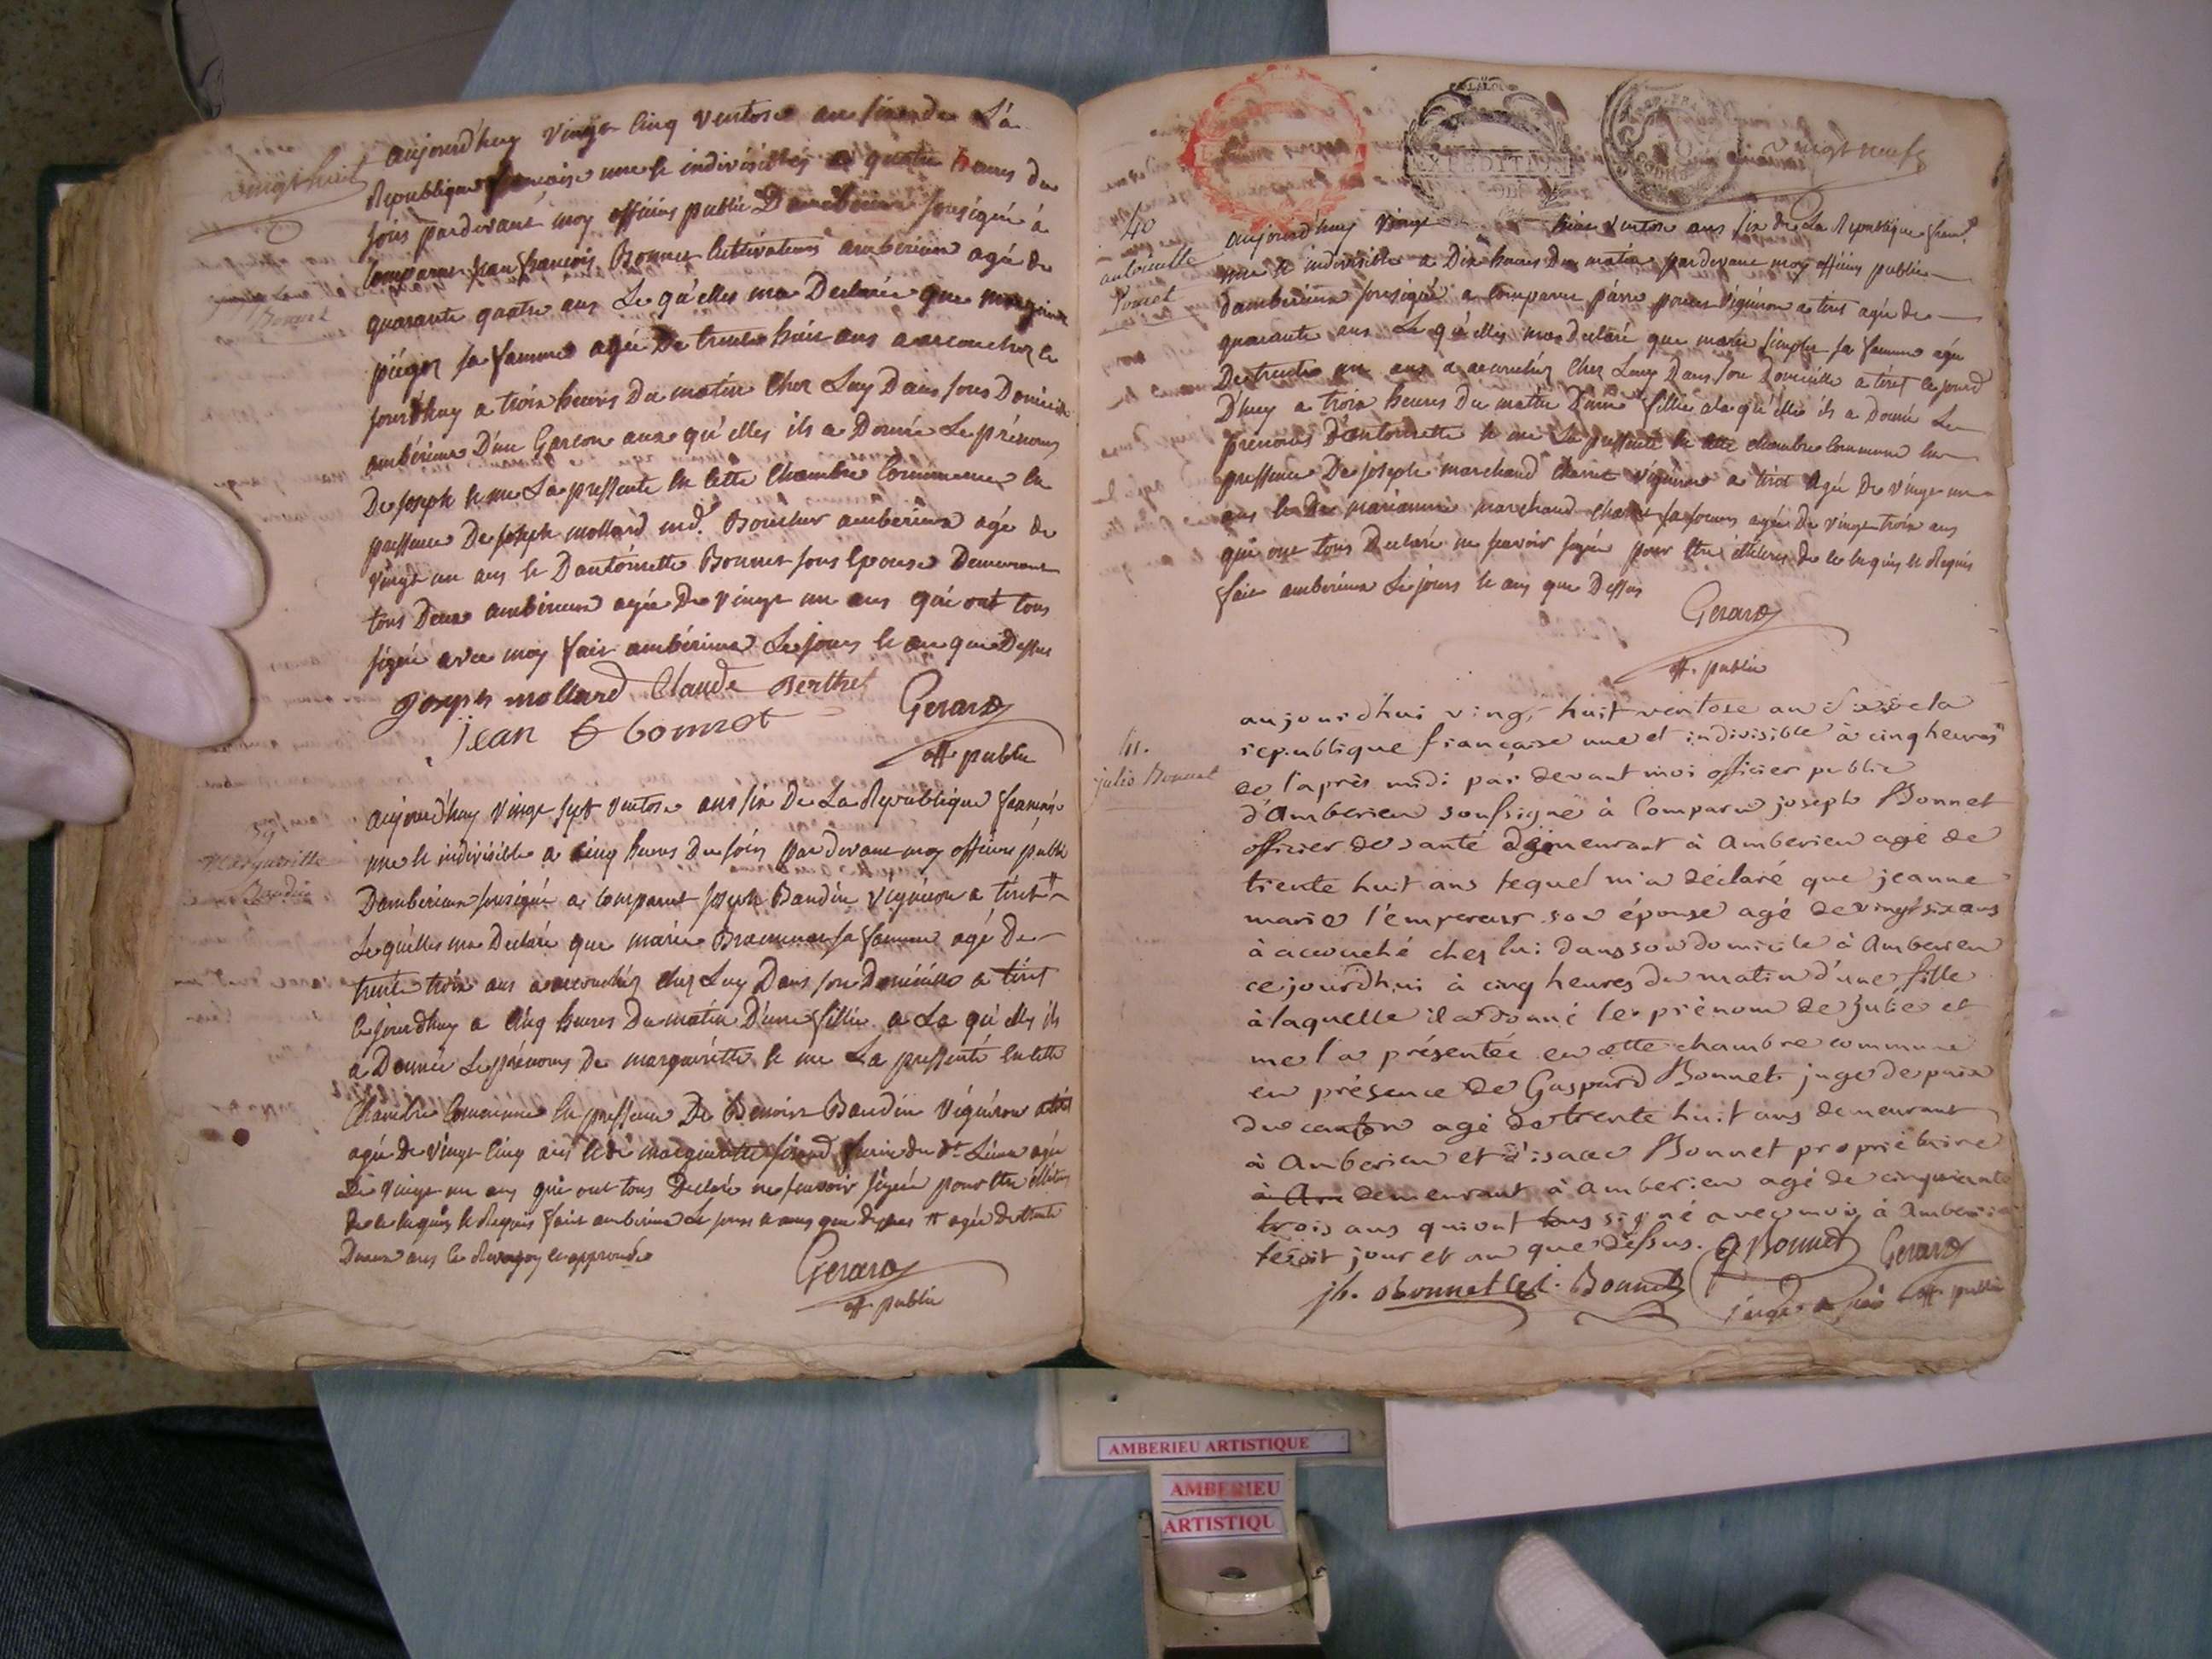 vingt huit
aujourd'huy vingt cinq ventose ans six de La
Republique francoise une et indivisibles a quatre heures du
soirs pardevant moy officiers public Damberieux sousigné à
Comparus jean francois Bonnet Cultivateurs amberieux agé de
quarante quatre ans Le qu'elles ma Declarée que
sa famme agée De trente huit ans a accouchez ce
jourd'huy a trois heures Du matin Chez Luy Dans sons Domicile
ambérieux D'un Garcons aux qu'elles ils a Donnée Le prénoms
De joseph et me La pressenté en cette Chambre Commune en
pressence De joseph mollard md. Boucher amberieux agé de
vingt un ans et Dantoinette Bonnet sons epouse Demeurant
tous Deux amberieux agée De vingt un ans qui ont tous
signée avec moy fait ambérieux Le jours et ans que Dessus
joseph mollard Claude Berthet Gerard
jean f bonnet
off. public
39
Margueritte
Baudin
aujourd'huy vingt sept ventose ans six De La Republique francoise
une et indivisible a cinq heures Du soirs pardevant moy officiers public
Damberieux sousigné a Comparut joseph Baudin vigneron a tiret #
Le quelles ma Declaré que marie sa famme agé De
trente trois ans a accouchez chez Luy Dans son Domicille a tiret
ce jourdhuy a Cinq heures Du matin D'une fillie a La qu'elles ils
a Donnée Le prénoms De marguéritte et me La pressenté en cette
Chambre Commune en pressence De Benoist Baudin vigneron a tiret
agé De vingt Cinq ans et de marguéritte
De vingt un ans qui ont tous Declaré ne savoir signée pour etre illitérés
de ce enquis et Requis fait ambérieux Le jours et ans que dessus # agée De trente
Deux ans Le Renvoy en approuvée
Gerard
off. public
vingt neuf
40
antoinette
Poncet
aujourd'huy vingt huit ventose ans six de La Republique franc.
une et indivisible a Dix heures Du matin pardevant moy officiers public
Damberieux sousigné a Comparus pierre poncet vigneron a tiret agé de
quarante ans Le qu'elles ma declaré que marie sa famme agée
De trente un ans a accouchéz Chez Luy Dans son Domicille a tiret ce jourd
D'huy a trois heures Du matin D'une fillie a la qu'elle ils a Donnée Le
prénoms D'antoinette et me La pressenté en cette chambre Commune en
pressence De joseph marchand charnet vigneron a tiret agée De vingt un
ans et de marianne marchand charnet sa soeurs agée De vingt trois ans
qui ont tous Declaré ne savoir signée pour etre illitérés de ce enquis et Requis
fait amberieux Le jours et ans que Dessus
Gerard
off. public
41.
julie Bonnet
aujourd'hui vingt huit ventose an six de la
republique française une et indivisible à cinq heures
de l'après midi par devant moi officier public
d'Amberieu soussigné à Comparu joseph Bonnet
officier de santé demeurant à Amberieu agé de
trente huit ans lequel m'a déclaré que jeanne
marie l'empereur son épouse agé de vingt six ans
à accouché chez lui dans son domicile à Amberieu
ce jourd'hui à cinq heures du matin d'une fille
à laquelle il a donné le prénom de julie et
me l'a présentée en cette chambre commune
en présence de Gaspard Bonnet juge de paix
du canton agé de trente huit ans demeurant
à Amberieu et d'isaac Bonnet propriétaire
à Am demeurant à amberieu agé de cinquante
trois ans qui ont tous signé avec moi à Amberieu
lesdit jour et an que dessus. G Bonnet Gerard
jh. Bonnet Bonnet juge de paix off. public
AMBERIEU ARTISTIQUE
AMBERIEU
ARTISTIQU